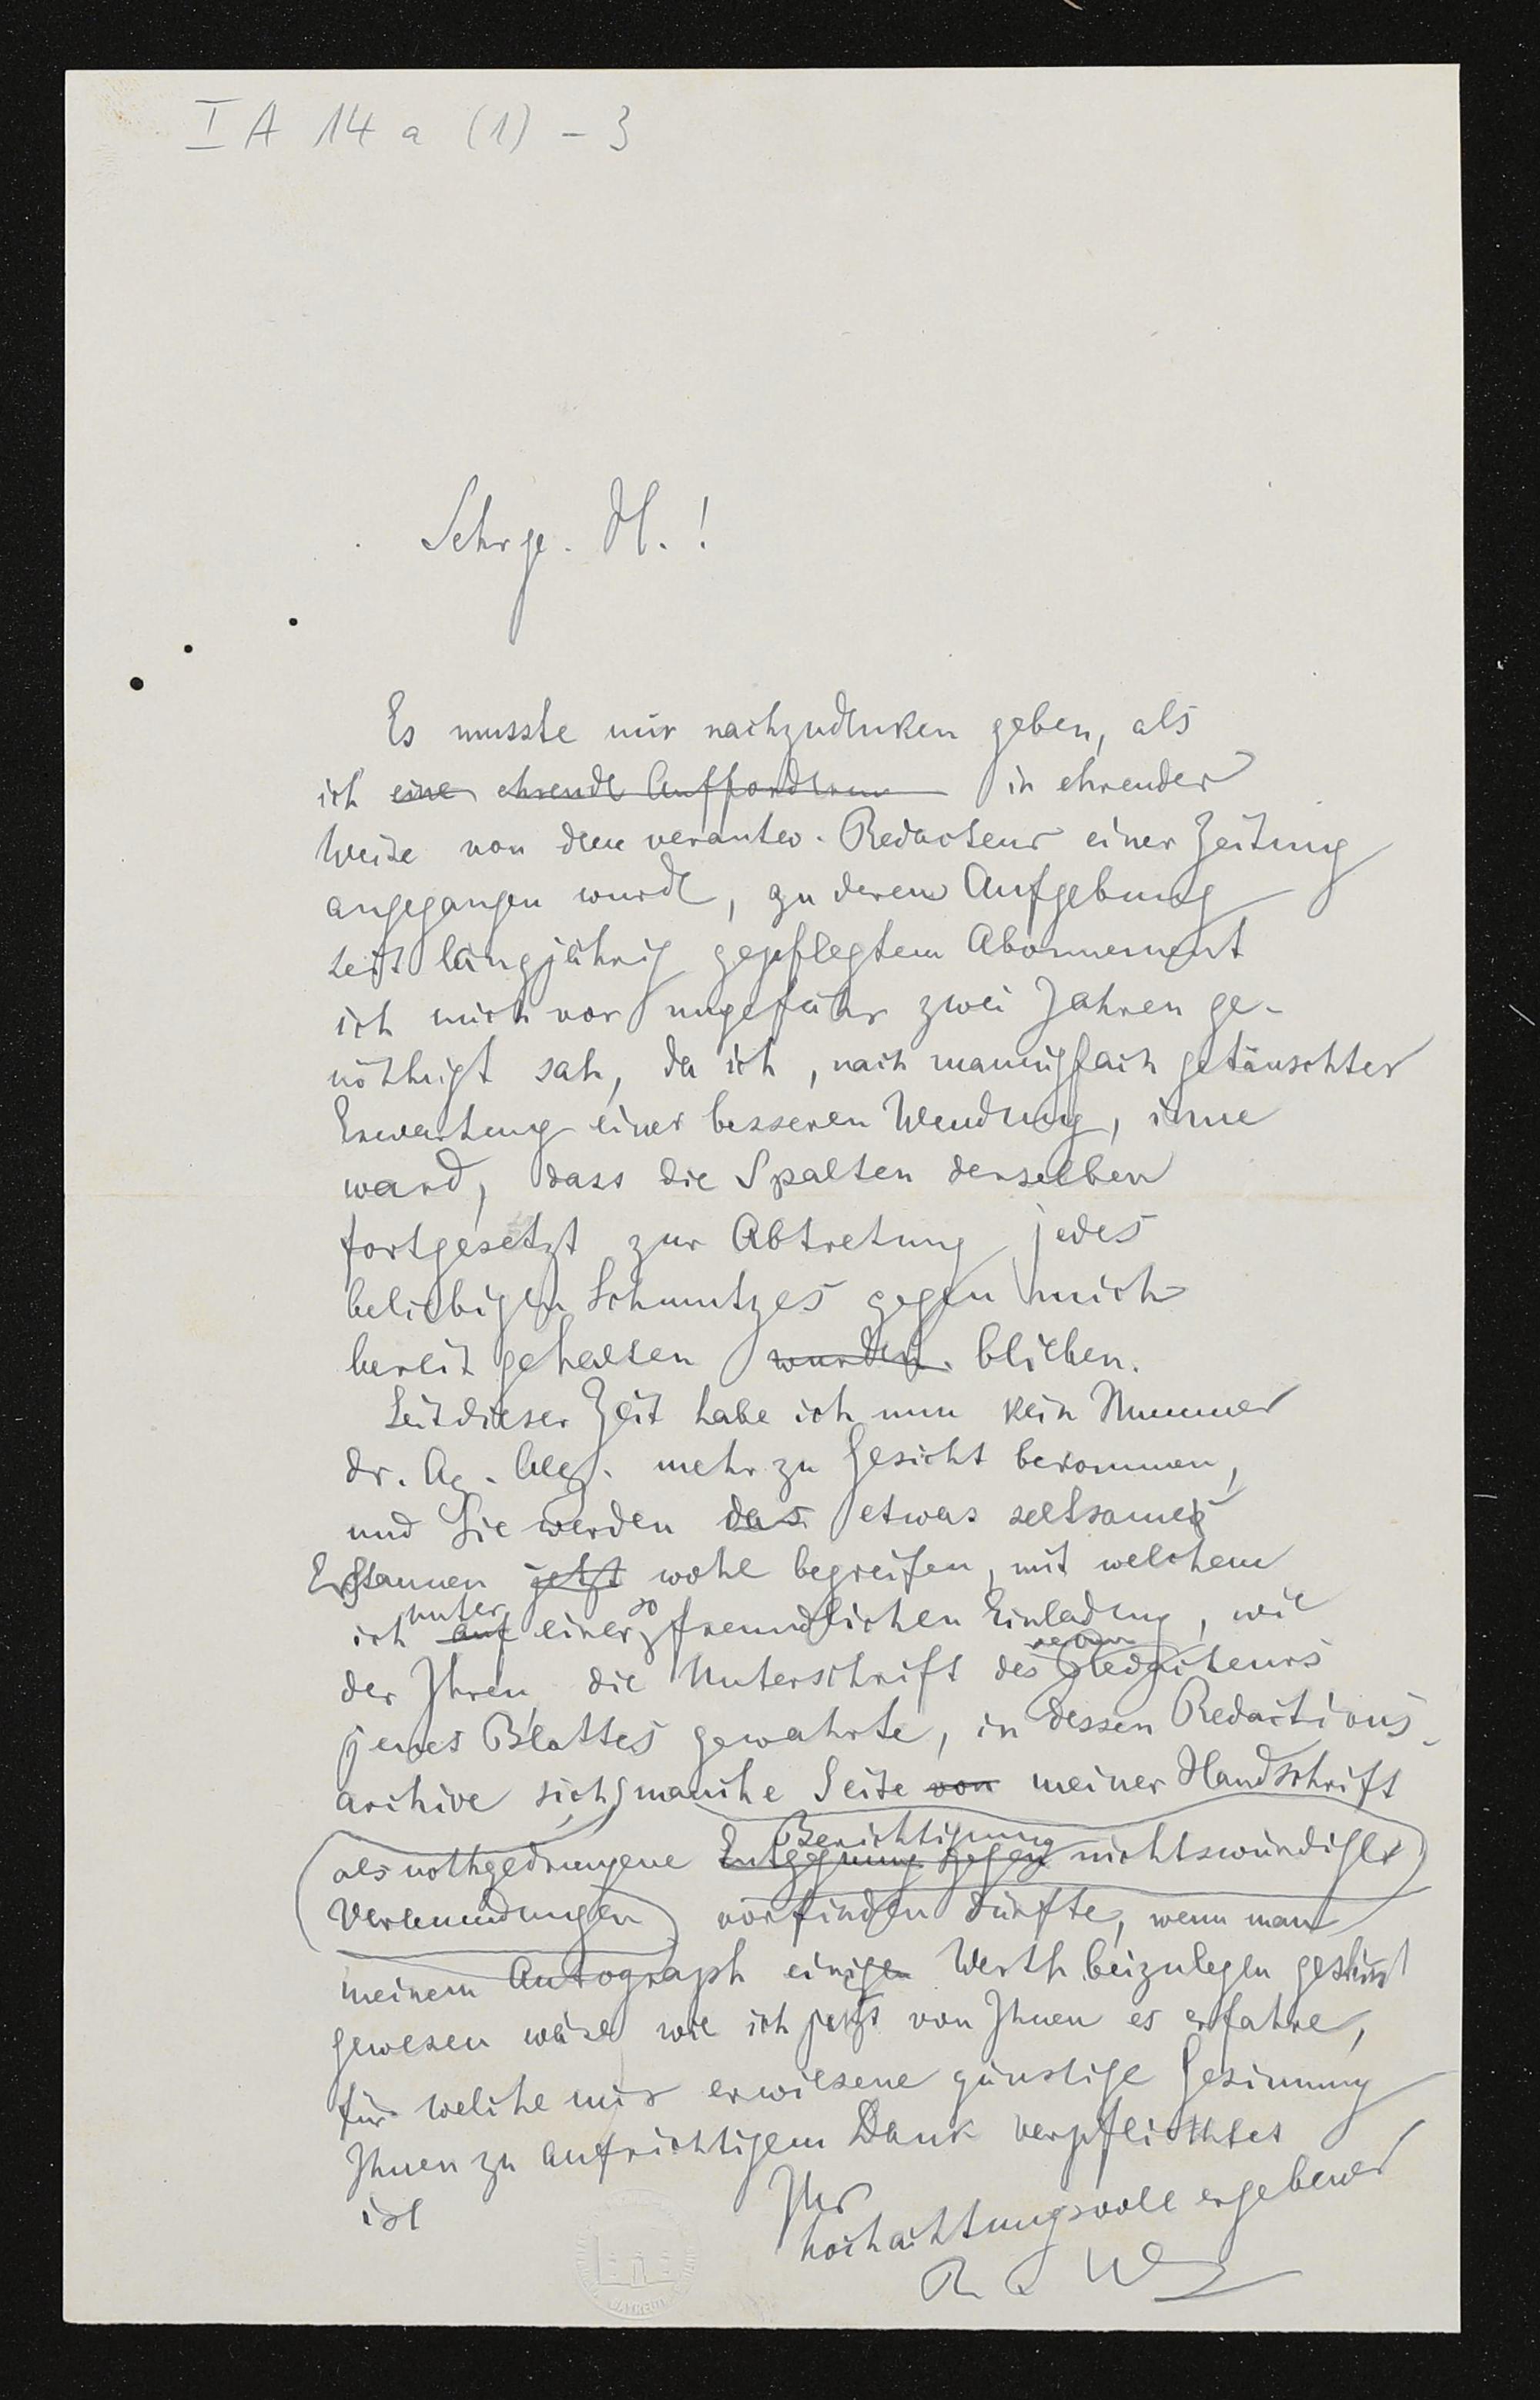 I A 14 a (1) - 3
Sehr ge. H. !
Es musste mir nachzudenken geben, als
ich eine ehrende Aufforderun in ehrender
Weise von dem verantw. Redacteur einer Zeitung
angegangen wurde, zu deren Aufgebung
seit langjährig gepflegtem Abonnement
ich mich vor ungefähr zwei Jahren ge-
nöthigt sah, da ich, nach mannigfach getäuschter
Erwartung einer besseren Wendung, inne
ward, dass die Spalten derselben
fortgesetzt zur Abtretung jedes
beliebigen Schmutzes gegen mich
bereit gehalten wurden. blieben.
Seit dieser Zeit habe ich nun kein Nummer
dr. Ag. Allg. mehr zu Gesicht bekommen,
und Sie werden das etwas seltsames
Erstaunen jetzt wohl begreifen, mit welchem
ich auf unter einer so freundlichen Einladung, wie
der Ihren die Unterschrift des Redacteurs
jenes Blattes gewahrte, in dessen Redactions-
archive sich manche Seite von meiner Handschrift
als nothgedrungene Entgegnung gegen Berichtigung nichtswürdiger
Verleumdungen vorfinden dürfte, wenn man
meinem Autograph einigen Werth beizulegen gesinnt
gewesen wäre wie ich jetzt von Ihnen es erfahre,
für welche mir erwiesene günstige Gesinnung
Ihnen zu aufrichtigem Dank verpflichtet
ist
Ihr
hochachtungsvoll ergebener